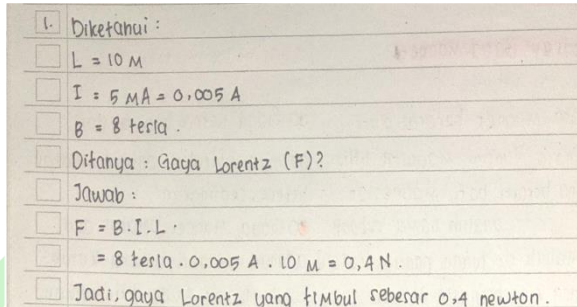 1. Diketahui :
L = 10 M
I = 5 MA = 0,005 A
B = 8 tesla .
Ditanya : Gaya Lorentz (F)?
Jawab :
F = B.I.L.
= 8 tesla . 0,005 A . 10 M = 0,4 N.
Jadi, gaya Lorentz yang timbul sebesar 0,4 newton.